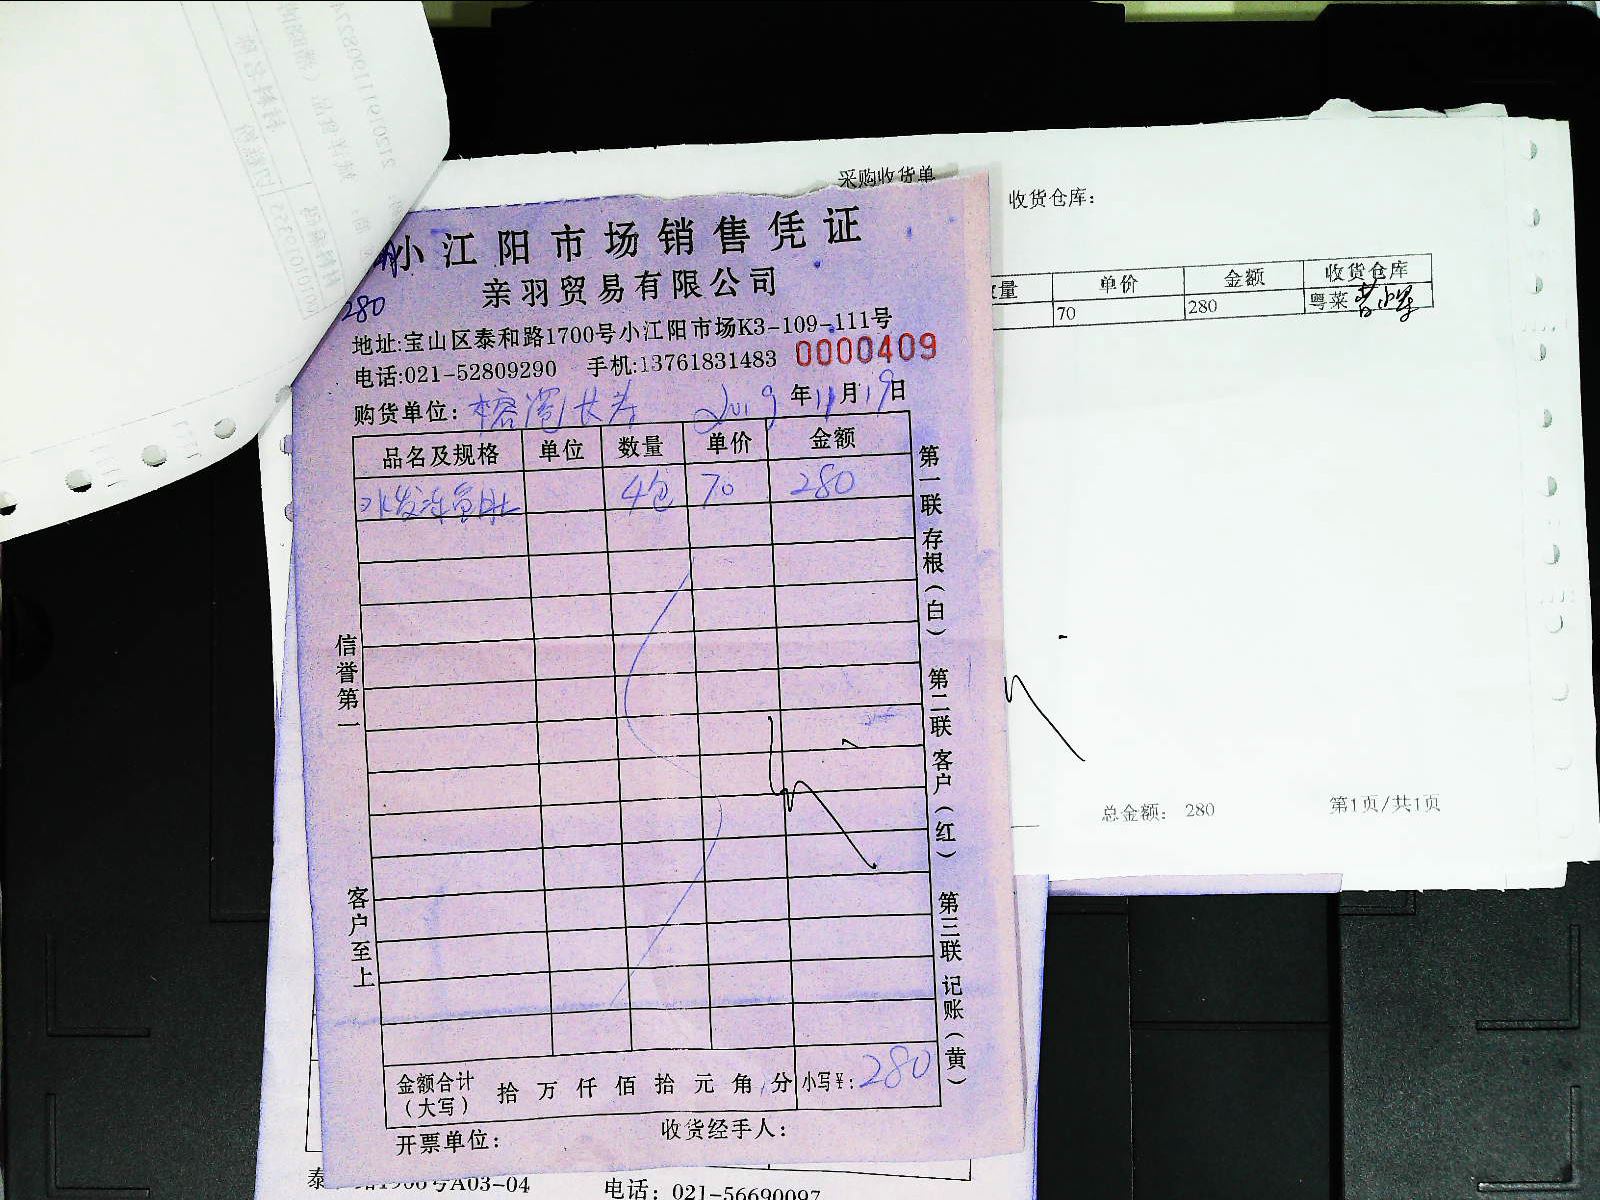 采购收货单
收货仓库:
单价 金额 收货仓库
70 280 粤菜
总金额: 280 第1页/共1页
小江阳市场销售凭证
亲羽贸易有限公司
280
地址:宝山区泰和路1700号小江阳市场K3-109-111号
电话:021-52809290 手机:13761831483 0000409
购货单位: 2019年11月19日
品名及规格 单位 数量 单价 金额
水发 4包 70 280
信誉第一
客户至上
第一联 存根(白) 第二联 客户(红) 第三联 记账(黄)
金额合计(大写) 拾 万 仟 佰 拾 元 角 分 小写¥: 280
开票单位: 收货经手人:
A03-04 电话: 021-56690097